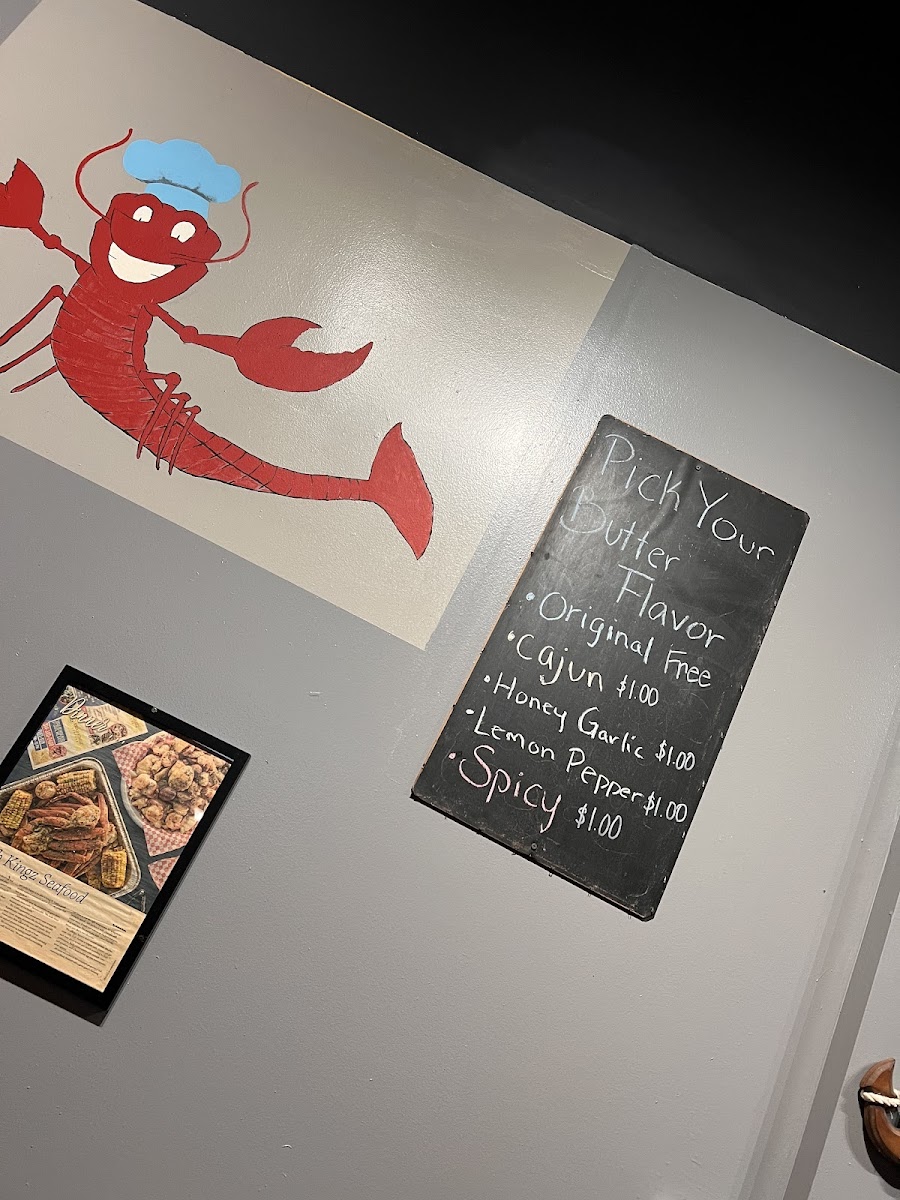 Pick Your
Butter
Flavor
• Original Free
• Cajun $1.00
• Honey Garlic $1.00
• Lemon Pepper $1.00
• Spicy $1.00
Kingz Seafood